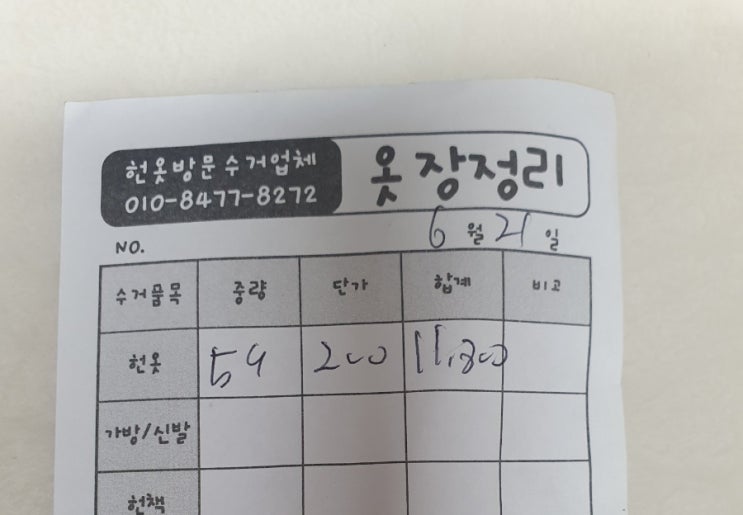 헌옷방문수거업체
010-8477-8272
옷장정리
6월 21일
NO.
수거품목 중량 단가 합계 비고
헌옷 59 200 11,800
가방/신발
헌책